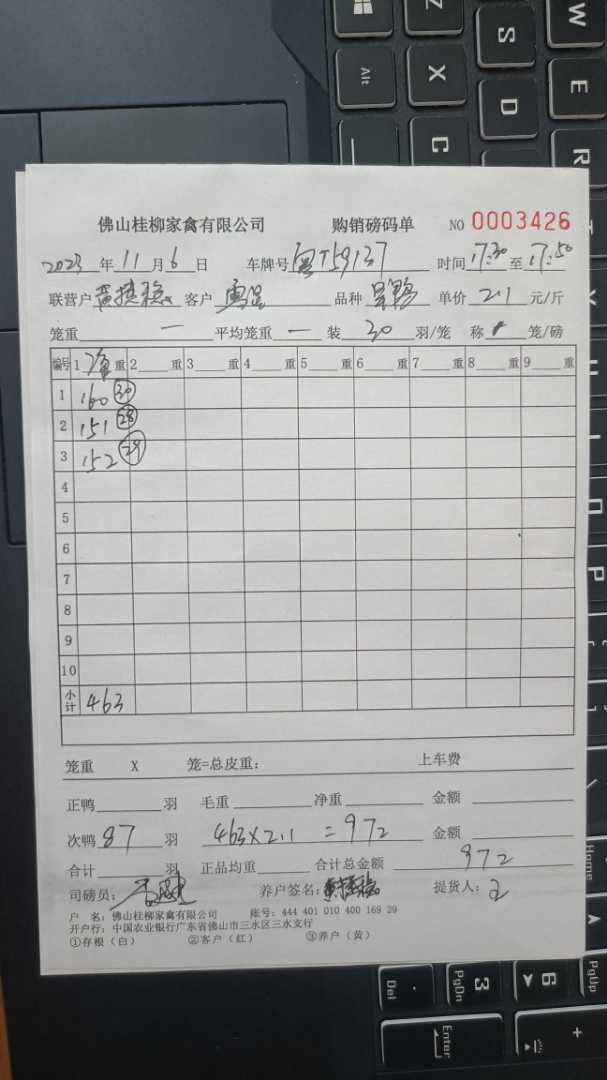 佛山桂柳家禽有限公司 购销磅码单 NO 0003426
2023年11月6日 车牌号粤T59137 时间17:30至17:50
联营户 客户 品种 单价2.1元/斤
笼重 — 平均笼重 — 装30羽/笼 称 笼/磅
编号 1净重 2重 3重 4重 5重 6重 7重 8重 9重
1 160 30
2 151 28
3 152 29
4
5
6
7
8
9
10
小计 463
笼重 X 笼=总皮重: 上车费
正鸭 羽 毛重 净重 金额
次鸭87羽 463×2.1=972 金额
合计 羽 正品均重 合计总金额 972
司磅员: 养户签名: 提货人:
户 名: 佛山桂柳家禽有限公司 账号: 444 401 010 400 169 29
开户行: 中国农业银行广东省佛山市三水区三水支行
①存根(白) ②客户(红) ③养户(黄)
W
Z
S
E
Alt
X
D
C
R
P
Home
PgUp
Del
PgDn
3
6
Enter
+